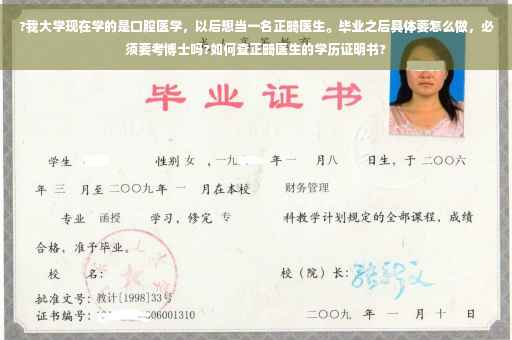 ?我大学现在学的是口腔医学，以后想当一名正畸医生。毕业之后具体要怎么做，必
须要考博士吗?如何查正畸医生的学历证明书?
毕业证书
学生 性别 女 ，一九 年 一 月八 日生，于 二〇〇六
年 三 月至 二〇〇九 年 一 月在本校 财务管理
专业 函授 学习，修完 专 科教学计划规定的全部课程，成绩
合格，准予毕业。
校 名： 校（院）长：
批准文号：教计[1998]33号
证书编号： 06001310 二〇〇九 年 一 月 十 日